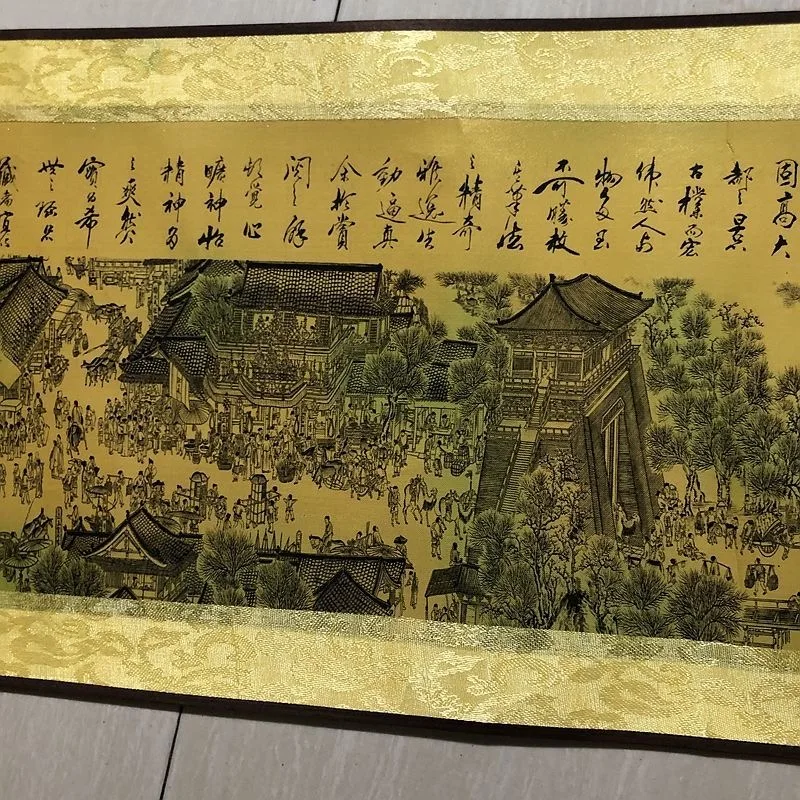 固高大
都之景
古樸而宏
偉然人
物多至
不可勝數
其筆法
之精奇
雅逸生
動逼真
余於賞
閱之餘
頓覺心
曠神怡
精神為
之爽然
希
世之珍
藏者宜